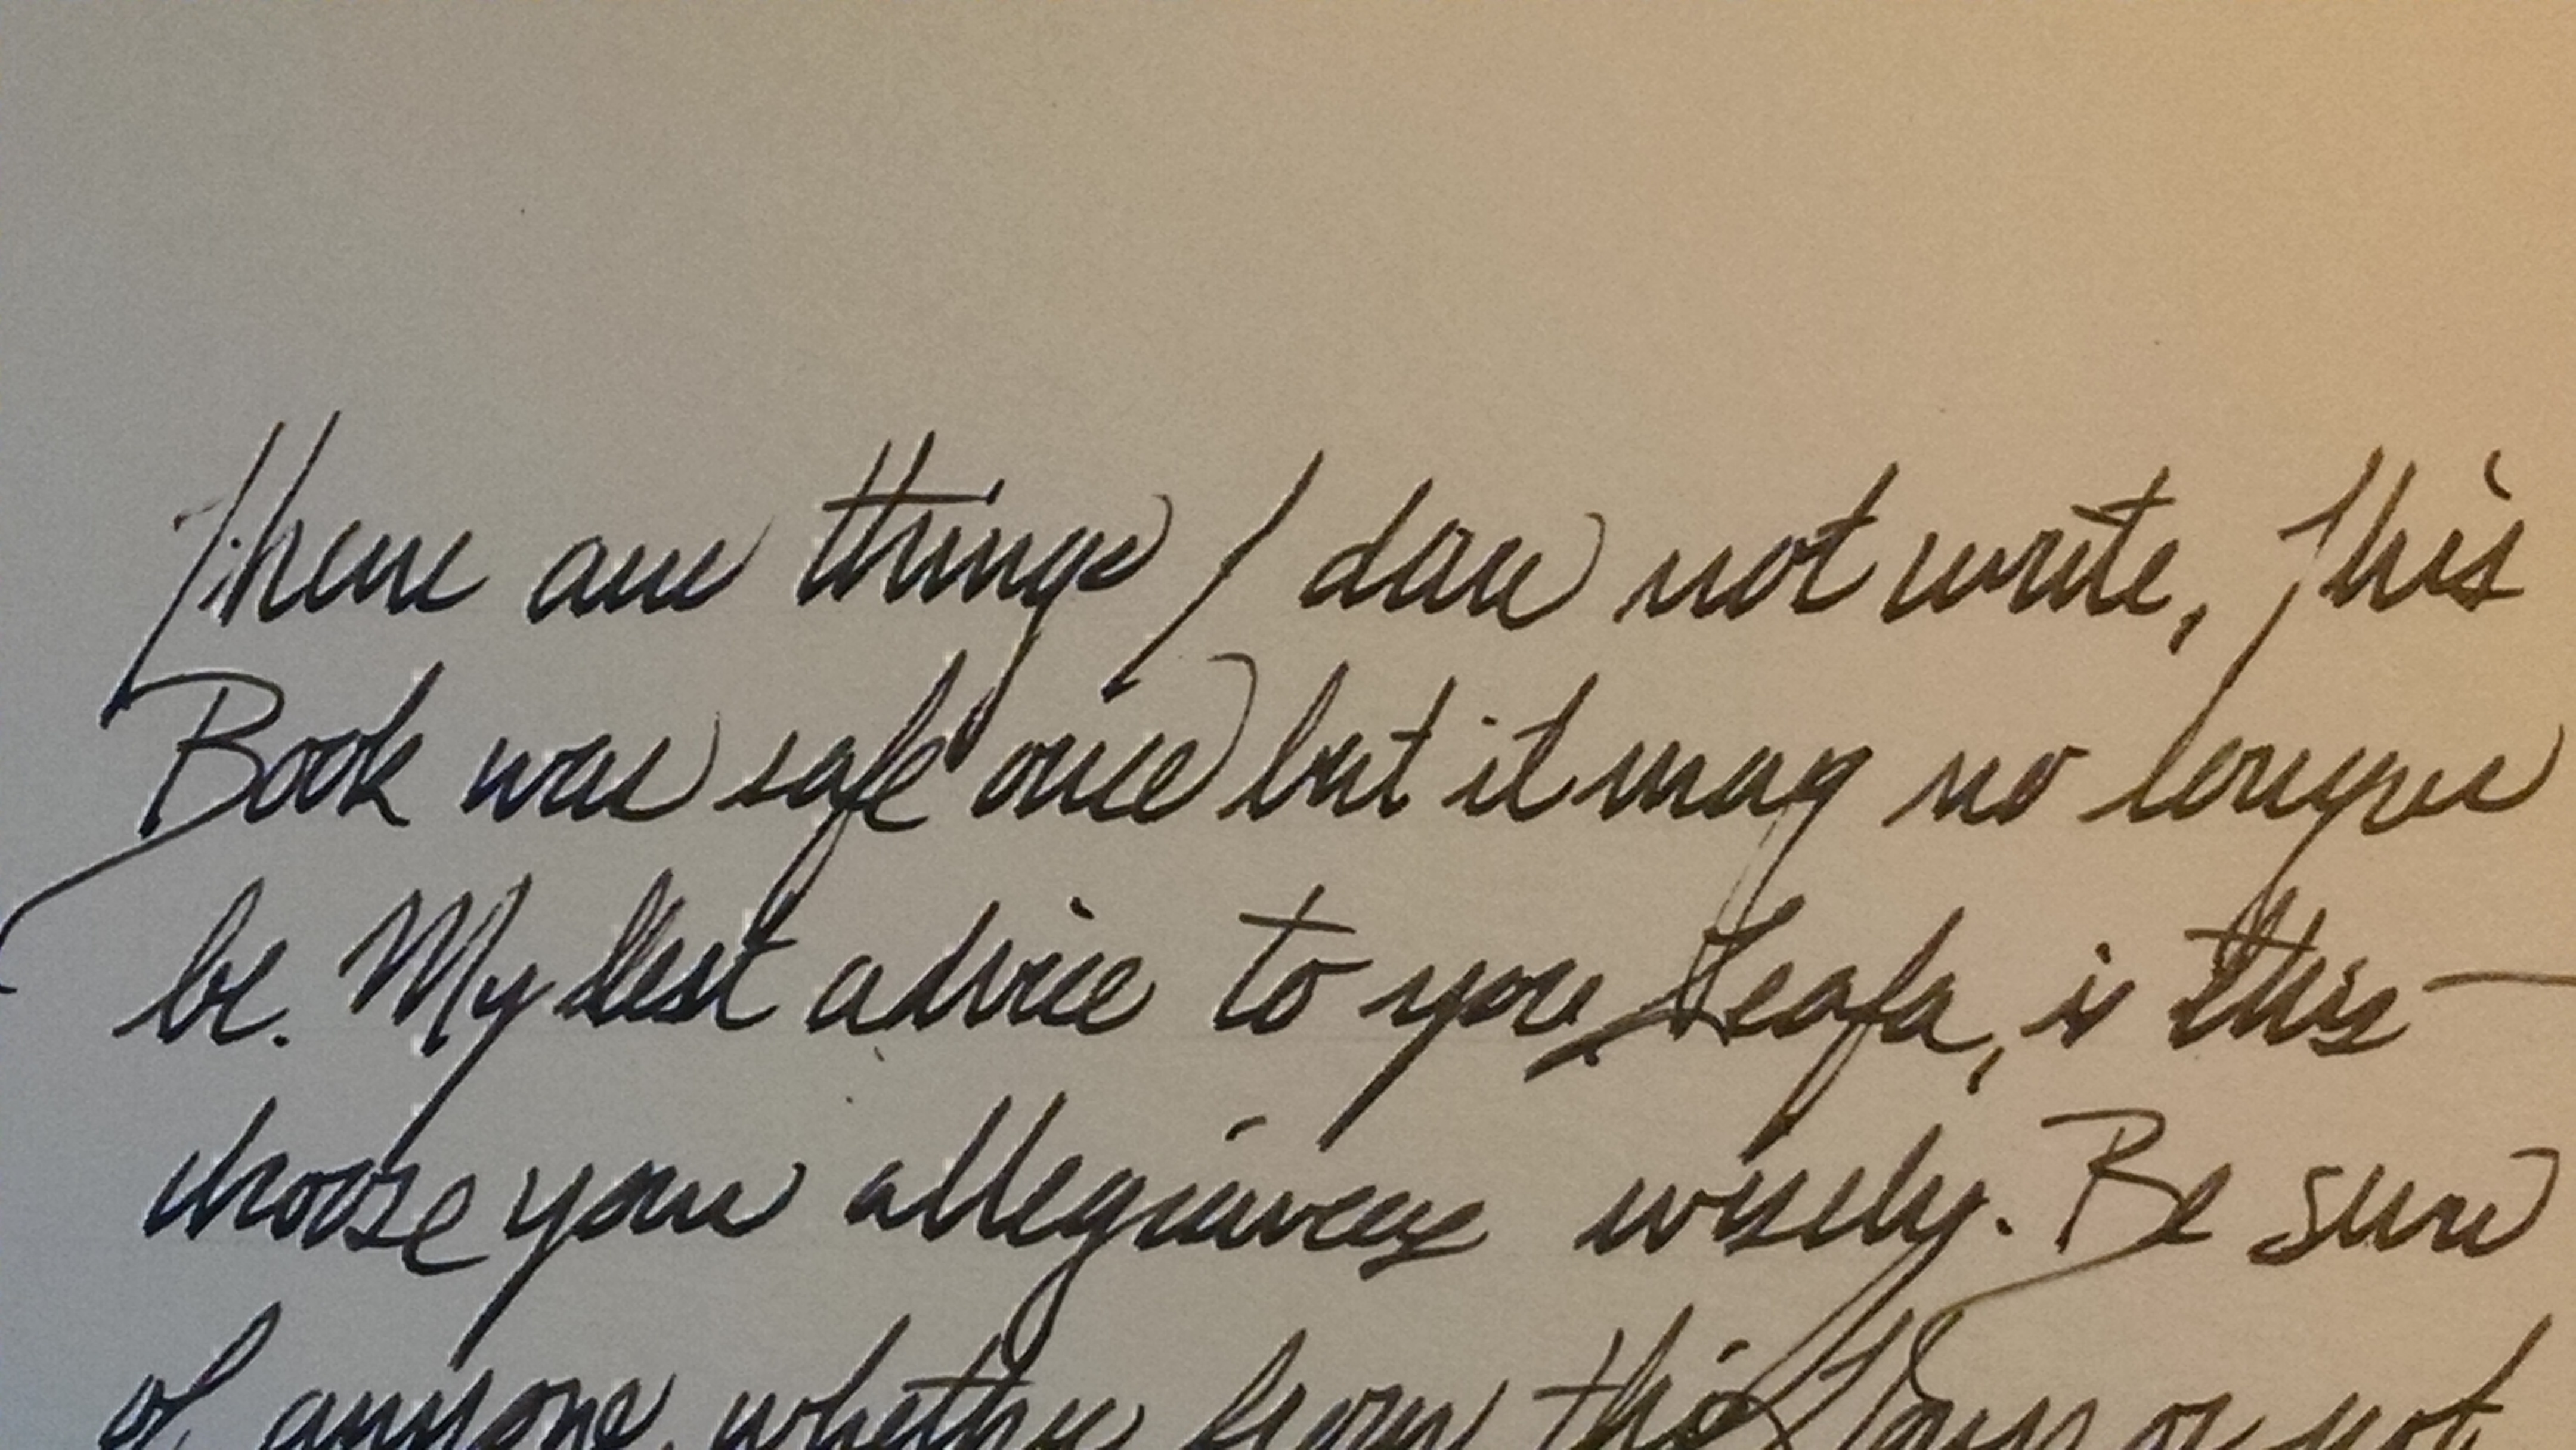 There are things I dare not write, This
Book was safe once but it may no longer
be. My best advice to you, Leafa, is this —
choose your allegiances wisely. Be sure
of anyone, whether from this Town or not